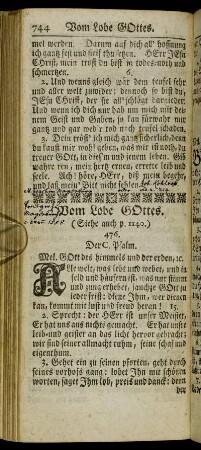 744 Vom Lobe GOttes.
mel werden. Darum auf dich all' hofnung
ich gantz fest und steif thu setzen. HErr JEsu
Christ, mein trost du bist in todes-noth und
schmertzen. 6.
2. Und wenns gleich wär dem teufel sehr
und aller welt zuwider; dennoch so bist du,
JEsu Christ, der sie all' schlägt darnieder.
Und wenn ich dich nur hab um mich mit dei-
nem Geist und Gaben, so kan fürwahr mir
gantz und gar wed'r tod noch teufel schaden.
3. Dein tröst' ich mich gantz sicherlich, denn
du kanst mir wohl geben, was mir ist noth, du
treuer GOtt, in dies'm und jenem leben. Gib
wahre reu, mein hertz erneu, errette leib und
seele. Ach! höre, HErr, diß mein begehr,
und laß mein' Bitt nicht fehlen.
Vom Lobe GOttes.
(Siehe auch p. 1140.)
476.
Der C. Psalm.
Mel. GOtt des himmels und der erden, ꝛc.
Alle welt, was lebt und webet, und in
feld und häusern ist, was nur stimm
und zung erhebet, jauchze GOtt zu
jeder frist: diene Ihm, wer dienen
kan, kommt mit lust und freud heran! 15.
2. Sprecht: der HErr ist unser Meister,
Er hat uns aus nichts gemacht. Er hat unsre
leib- und geister an das licht hervor gebracht:
wir sind seiner allmacht ruhm, seine schaf und
eigenthum.
3. Gehet ein zu seinen pforten, geht durch
seines vorhofs gang: lobet Ihn mit schönen
worten, saget Ihm lob, preis und danck: denn
der